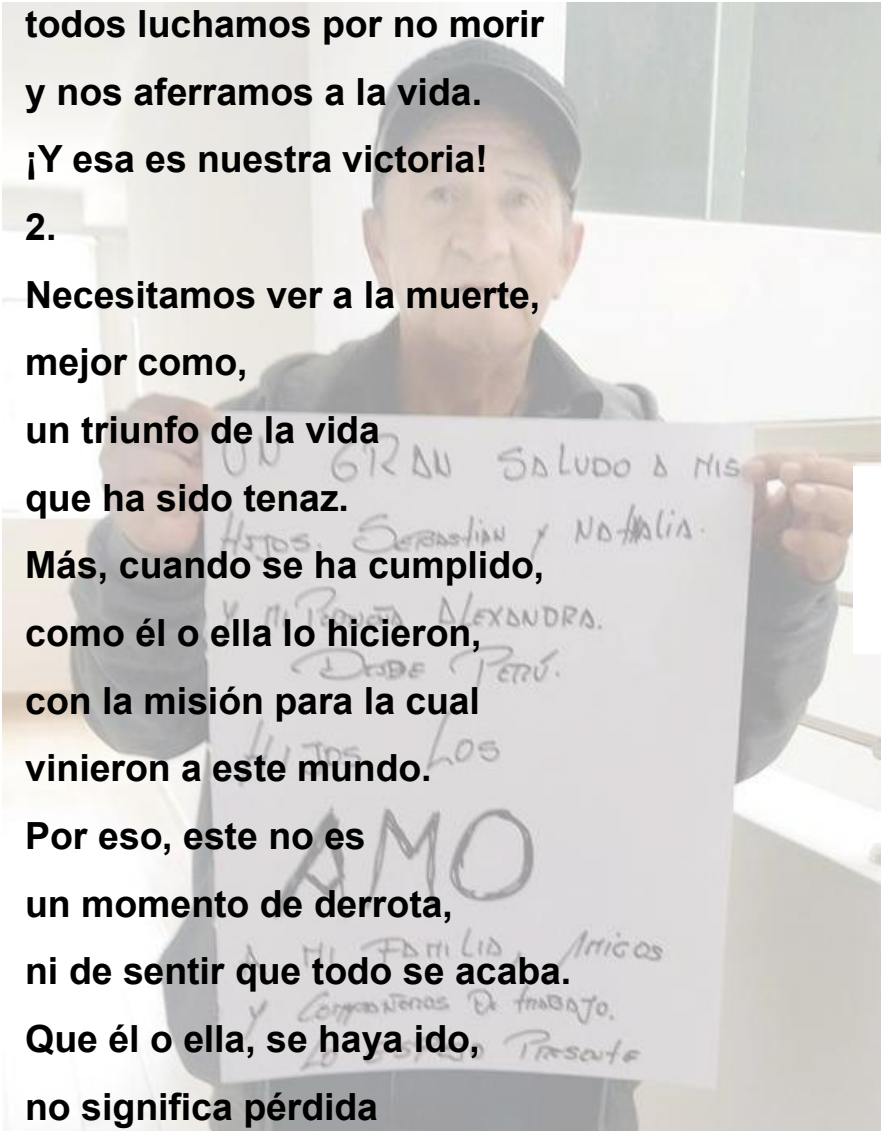 todos luchamos por no morir
y nos aferramos a la vida.
¡Y esa es nuestra victoria!
2.
Necesitamos ver a la muerte,
mejor como,
un triunfo de la vida
que ha sido tenaz.
Más, cuando se ha cumplido,
como él o ella lo hicieron,
con la misión para la cual
vinieron a este mundo.
Por eso, este no es
un momento de derrota,
ni de sentir que todo se acaba.
Que él o ella, se haya ido,
no significa pérdida
UN GRAN SALUDO A MIS
HIJOS. SEBASTIAN Y NATHALIA.
Y MI ALEXANDRA.
DESDE PERÚ.
HIJOS LOS
AMO
A MI FAMILIA, AMIGOS
Y COMPAÑEROS DE TRABAJO.
PRESENTE